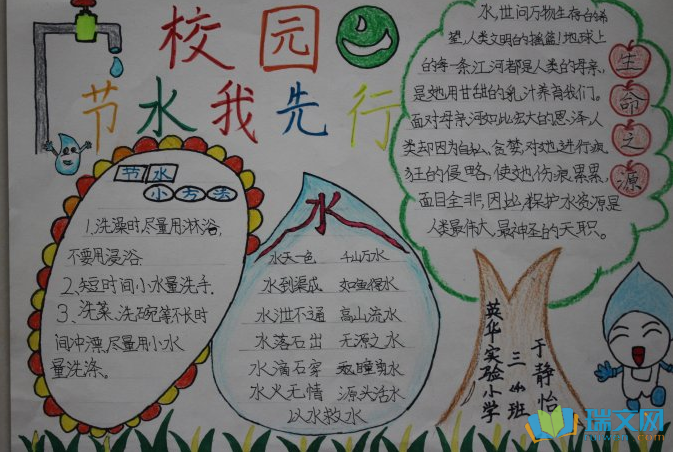 校园
节水我先行
节水
小方法
1、洗澡时,尽量用淋浴,
不要用浸浴.
2、短时间小水量洗手.
3、洗菜、洗碗等不长时
间冲漂,尽量用小水
量洗涤。
水
水天一色 千山万水
水到渠成 如鱼得水
水泄不通 高山流水
水落石出 无源之水
水滴石穿 秋瞳剪水
水火无情 源头活水
以水救水
水,世间万物生存台的希
望,人类文明的摇篮!地球上
的每一条江、河都是人类的母亲,
是她用甘甜的乳汁养育我们。
面对母亲河如此宏大的恩泽,人
类却因为自私、贪婪,对她进行疯
狂的侵略,使她伤痕累累,
面目全非,因此,保护水资源是
人类最伟大、最神圣的天职。
生命之源
英华实验小学
三
班
于静怡
瑞文网